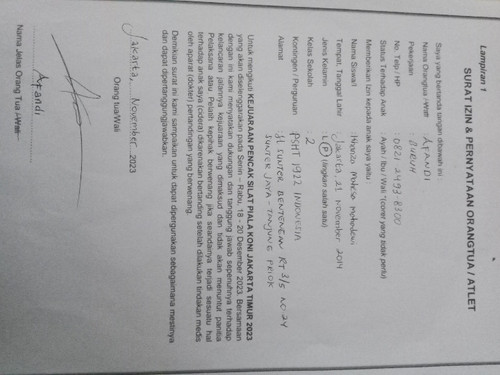 Lampiran 1
SURAT IZIN & PERNYATAAN ORANGTUA / ATLET
Saya yang bertanda tangan dibawah ini
Nama Orangtua / Wali : AFANDI
Pekerjaan : BURUH
No. Telp / HP : 0821 2493 8300
Status Terhadap Anak : Ayah / Ibu / Wali *(coret yang tidak perlu)
Memberikan Izin kepada anak saya yaitu
Nama Siswa/i :
Tempat, Tanggal Lahir : Jakarta 21 November 2014
Jenis Kelamin : L / P (lingkari salah satu)
Kelas Sekolah : 2
Kontingen / Perguruan : PSHT 1922 INDONESIA
Alamat : Jl SUNTER BENTENGAN RT 3/5 NO: 24
SUNTER JAYA - TANJUNG PRIOK
Untuk mengikuti KEJUARAAN PENCAK SILAT PIALA KONI JAKARTA TIMUR 2023
yang akan diselenggarakan pada Senin – Rabu, 18 - 20 Desember 2023. Bersamaan
dengan ini kami menyatakan dukungan dan tanggung jawab sepenuhnya terhadap
kelancaran jalannya kejuaraan yang dimaksud dan tidak akan menuntut panitia
Pelaksana atau Pelatih kepihak berwenang jika seandainya terjadi sesuatu hal
terhadap anak saya (cidera) dikarenakan bertanding setelah dilakukan tindakan medis
oleh aparat (dokter) pertandingan yang berwenang.
Demikian surat ini kami sampaikan untuk dapat dipergunakan sebagaimana mestinya
dan dapat dipertanggungjawabkan.
Jakarta, November 2023
Orang tua/Wali
Afandi
Nama Jelas Orang Tua / Wali